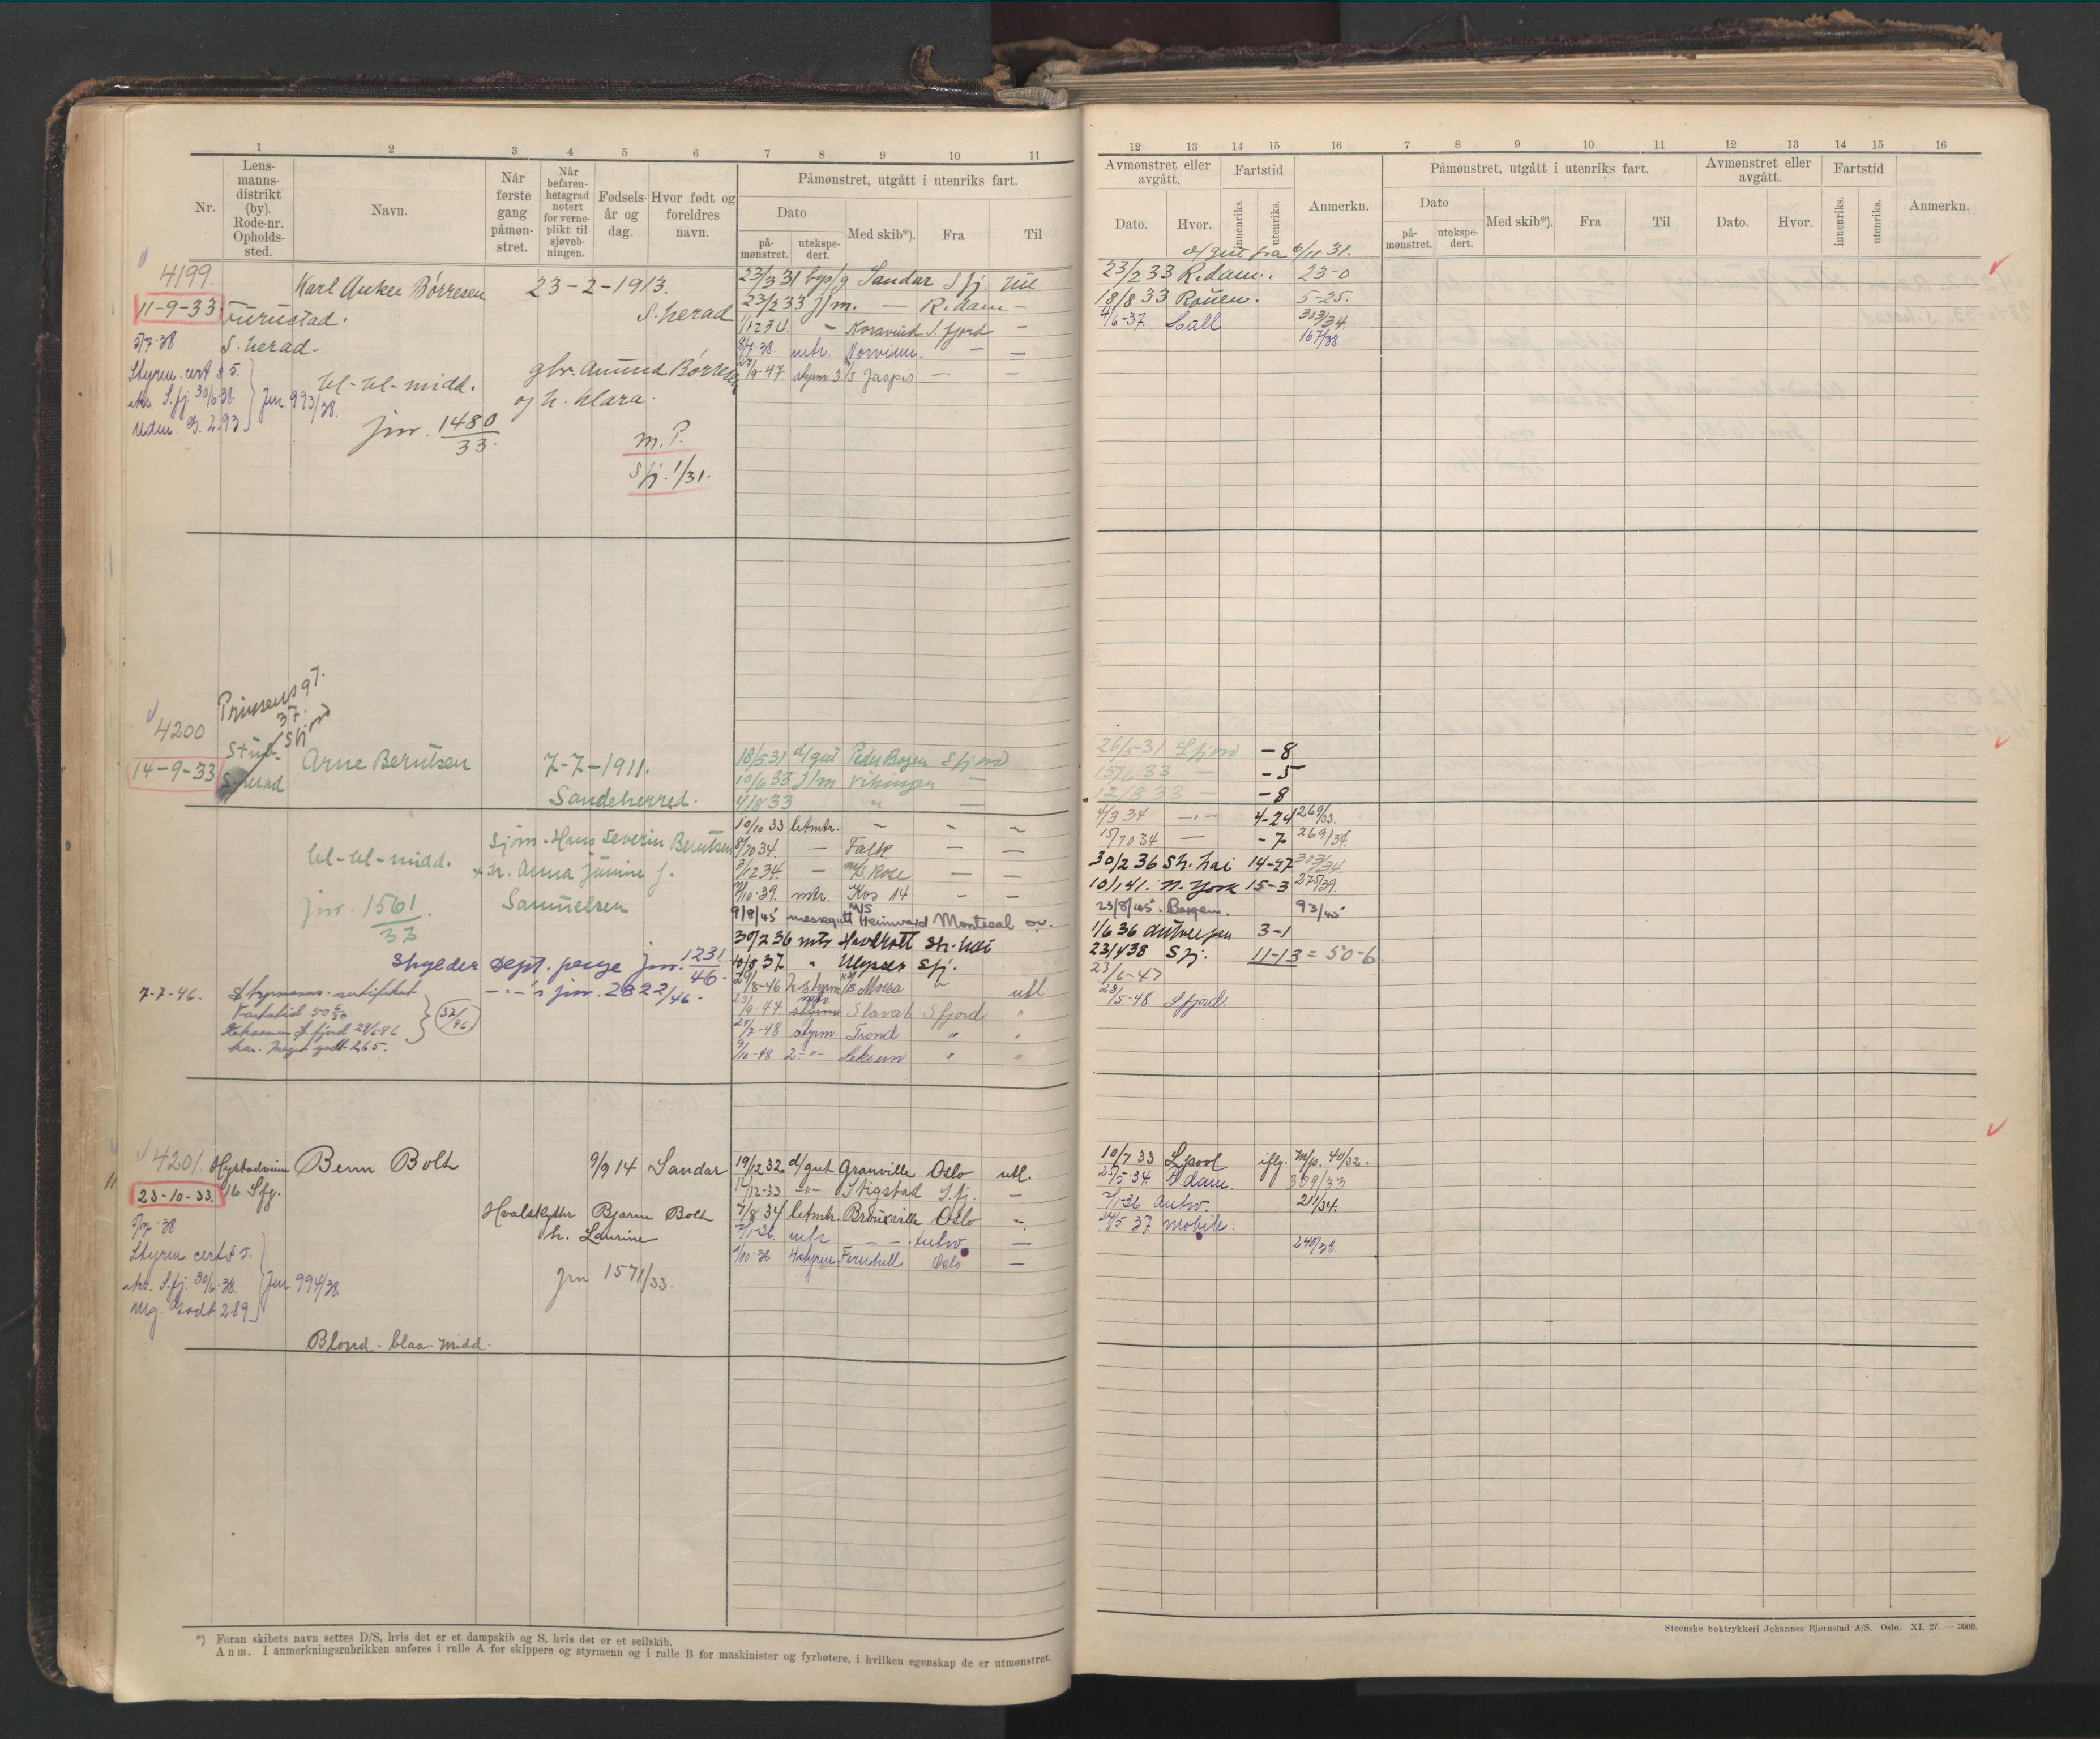 1 2 3 4 5 6 7 8 9 10 11
Nr.
Lens-
manns-
distrikt
(by).
Rode-nr.
Opholds-
sted.
Navn.
Når
første
gang
påmøn-
stret.
Når
befaren-
hetsgrad
notert
for verne-
plikt til
sjøveb-
ningen.
Fødsels-
år og
dag.
Hvor født og
foreldres
navn.
Påmønstret, utgått i utenriks fart.
Dato
på-
mønstret.
utekspe-
dert.
Med skib*).
Fra
Til
4199.
11-9-33
Furustad.
S. herad.
Karl Anker Børresen 23-2-1913.
S. herad
5/7-38
Styrm. cert § 5.
eks. S.fj. 30/6-38.
Udm. 2.93
Jnr. 993/38.
bl-bl-midd.
gbr. Amund Børresen
og h. Klara.
jnr. 1480
33.
m.P.
Sfj. 1/31.
23/3 31 Sandar Sfj. Utl
23/2 33 j/m. — R.dam —
1/12 34 - S.fjord —
8/7 38. mtr. — —
/9-47. styrm 3 M/S Jaspis — —
4200
Prinsensgt.
37.
Sfjord
Stub-
S. herad
14-9-33
Arne Berntsen 7-7-1911.
Sandeherred.
bl-bl-midd.
Sjøm. Hans Severin Berntsen
+ h. Anna f.
Samuelsen
jnr. 1561.
33
Skylder Sept. penge jnr. 1231
46.
—.— s jnr. 2822/46.
7-7-46. Styrmanns-sertifikat
Fartstid 50
Eksamen S.fjord 28/6-46
kar. Meget godt 2,65.
32/46
18/5 31 d/gut Peder Bogen Sfjord
10/6 33 j/m Vikingen —
4/8 33 " —
10/10 33 letmtr. — — —
8/7034. — Falk — —
3/12 34. — M/S. Rose — —
/10-39. mtr. Kos 14 - -
9/8/45 messegutt M/S Heimvard Montreal
30/2 36 mtr Havkatt Sh. hai
10/8 37 " Ulysses Sfj.
/8-46 2 styrm Morsa " utl
23/9-47. Slavat Sfjord "
/7-48 styrm. Trond " "
/10-48 2-"- " "
4201.
Hystadveien
16 Sfj.
23-10-33.
Benn Bolt 9/9 14 Sandar
Hvalskytter Bjarne Bolt
h. Laurine
5/7-38
Styrm. cert § 5.
eks. S.fj. 30/6-38.
Mg. Godt 2.89
Jnr 994/38
jnr 1571/33.
Blond - blaa - midd.
19/12 32. d/gut Granville Oslo utl.
/12-33 -"- Stigstad S.fj. —
7/8 34 letmtr. Brouxville Oslo —
/1-36. mtr — — Antw. —
/10-36 Hstyrm Fernhill Oslo —
*) Foran skibets navn settes D/S, hvis det er et dampskib og S, hvis det er et seilskib.
Anm. I anmerkningsrubrikken anføres i rulle A for skippere og styrmenn og i rulle B for maskinister og fyrbøtere, i hvilken egenskap de er utmønstret.
12 13 14 15 16 7 8 9 10 11 12 13 14 15 16
Avmønstret eller
avgått.
Fartstid
Dato.
Hvor.
innenriks.
utenriks.
Anmerkn.
Påmønstret, utgått i utenriks fart.
Dato
på-
mønstret.
utekspe-
dert.
Med skib*).
Fra
Til
Avmønstret eller
avgått.
Fartstid
Dato.
Hvor.
innenriks.
utenriks.
Anmerkn.
d/gut fra 6/11 31.
23/2 33 R.dam. 23-0
18/8 33 Rouen. 5-25.
4/6-37. Hull 303/34.
167/38.
26/5-31 Sfjord -8
15/6 33 — -5
12/8 33 — -8
4/3 34 —.— 4-24 269/33.
15/7034 — -7 269/34.
30/2 36 Sh. hai 14-27 303/34.
10/1 41. N. York 15-3 275/39.
23/8/45. Bergen. 93/45
1/6 36 Antwerpen 3-1
23/438 Sfj. 11-13 = 50-6
23/6-47
28/5-48 S.fjord.
10/7 33 Lpool iflg. m/p. 40/32.
25/5-34 R.dam. 309/33
/1-36 Antw. 211/34.
/5 37 Mobile.
240/38.
Steenske boktrykkeri Johannes Bjørnstad A/S. Oslo. XI. 27. — 3000.